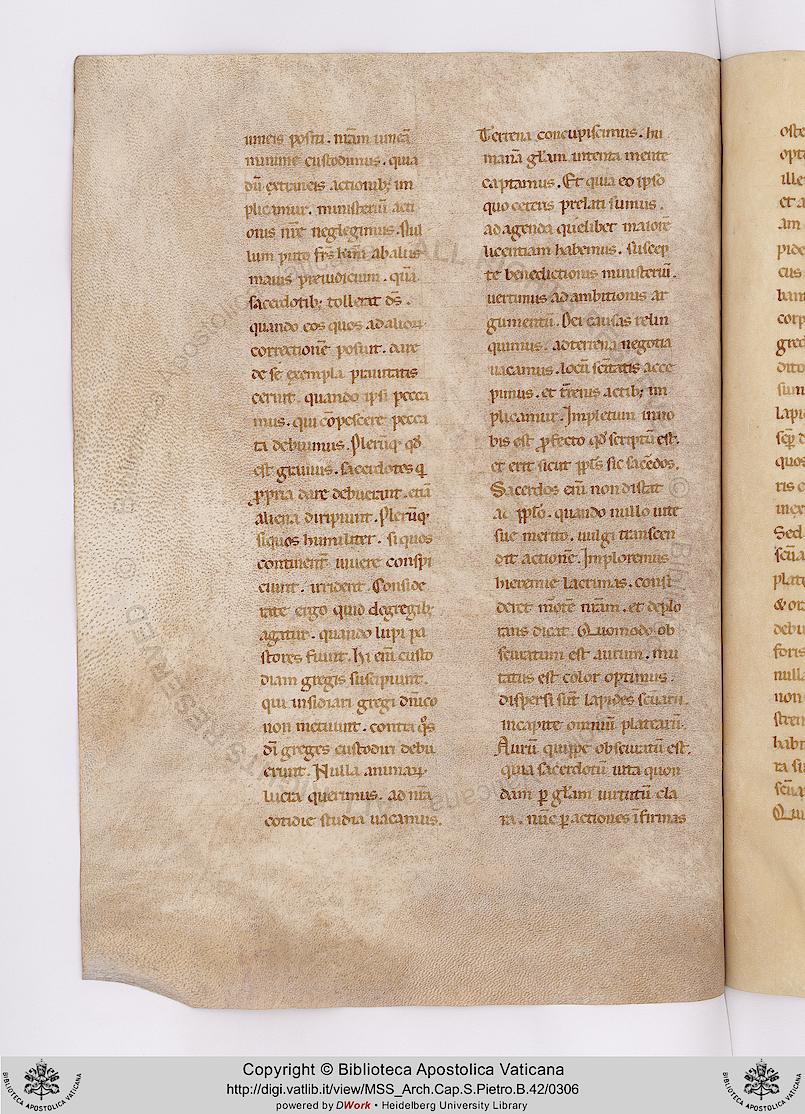 uineis positi. nr̄am uineā
minime custodimus. quia
dū extraneis actionib; im
plicamur. ministeriū acti
onis nr̄e neglegimus. Nul
lum puto fr̄s kr̄mi ab aliis
maius preiudiciū. quā
sacerdotib; tollerat d̄s.
quando eos quos ad alioꝝ
correctionē posuit. dare
de se exempla prauitatis
cernit. quando ipsi pecca
mus. qui cōpescere pecca
ta debuimus. Plerūq. qđ
est grauius. sacerdotes q̄
ꝓpria dare debuerant. etiā
aliena diripiunt. Plerūq.
si quos humiliter. si quos
continent̄ uiuere conspi
ciunt. irrident. Conside
rate ergo quid de gregib;
agatur. quando lupi pa
stores fiunt. Hi eni̅ custo
diam gregis suscipiunt.
qui insidiari gregi dn̄ico
non metuunt. contra qͦs
dī greges custodiri debu
erunt. Nulla animaꝝ
lucra querimus. ad nr̄a
cotidie studia uacamus.
Terrena concupiscimus. hu
manā gl̄am intenta mente
captamus. Et quia eo ipso
quo ceteris prelati sumus.
ad agenda quelibet maiorē
licentiam habemus. suscep
te benedictionis ministeriū.
uertimus ad ambitionis ar
gumentū. Dei causas relin
quimus. ad terrena negotia
uacamus. Locū sc̄itatis acce
pimus. et t̄renis actib; im
plicamur. Impletum in no
bis est ꝓfecto qđ scriptū est.
et erit sicut ppl̄s sic sac̄dos.
Sacerdos eni̅ non distat
a ppl̄o. quando nullo uite
sue merito. uulgi transcen
dit actionē. Imploremus
hieremie lacrimas. consi
deret mortē nr̄am. et deplo
rans dicat. Quomodo ob
scuratum est aurum. mu
tatus est color optimus.
dispersi sūt lapides sc̄uarii.
in capite omniū platearū.
Aurū quippe obscuratū est.
quia sacerdotū uita quon
dam p̲ gl̄am uirtutū cla
ra. nūc p̲ actiones īfimas
Copyright © Biblioteca Apostolica Vaticana
http://digi.vatlib.it/view/MSS_Arch.Cap.S.Pietro.B.42/0306
powered by DWork • Heidelberg University Library